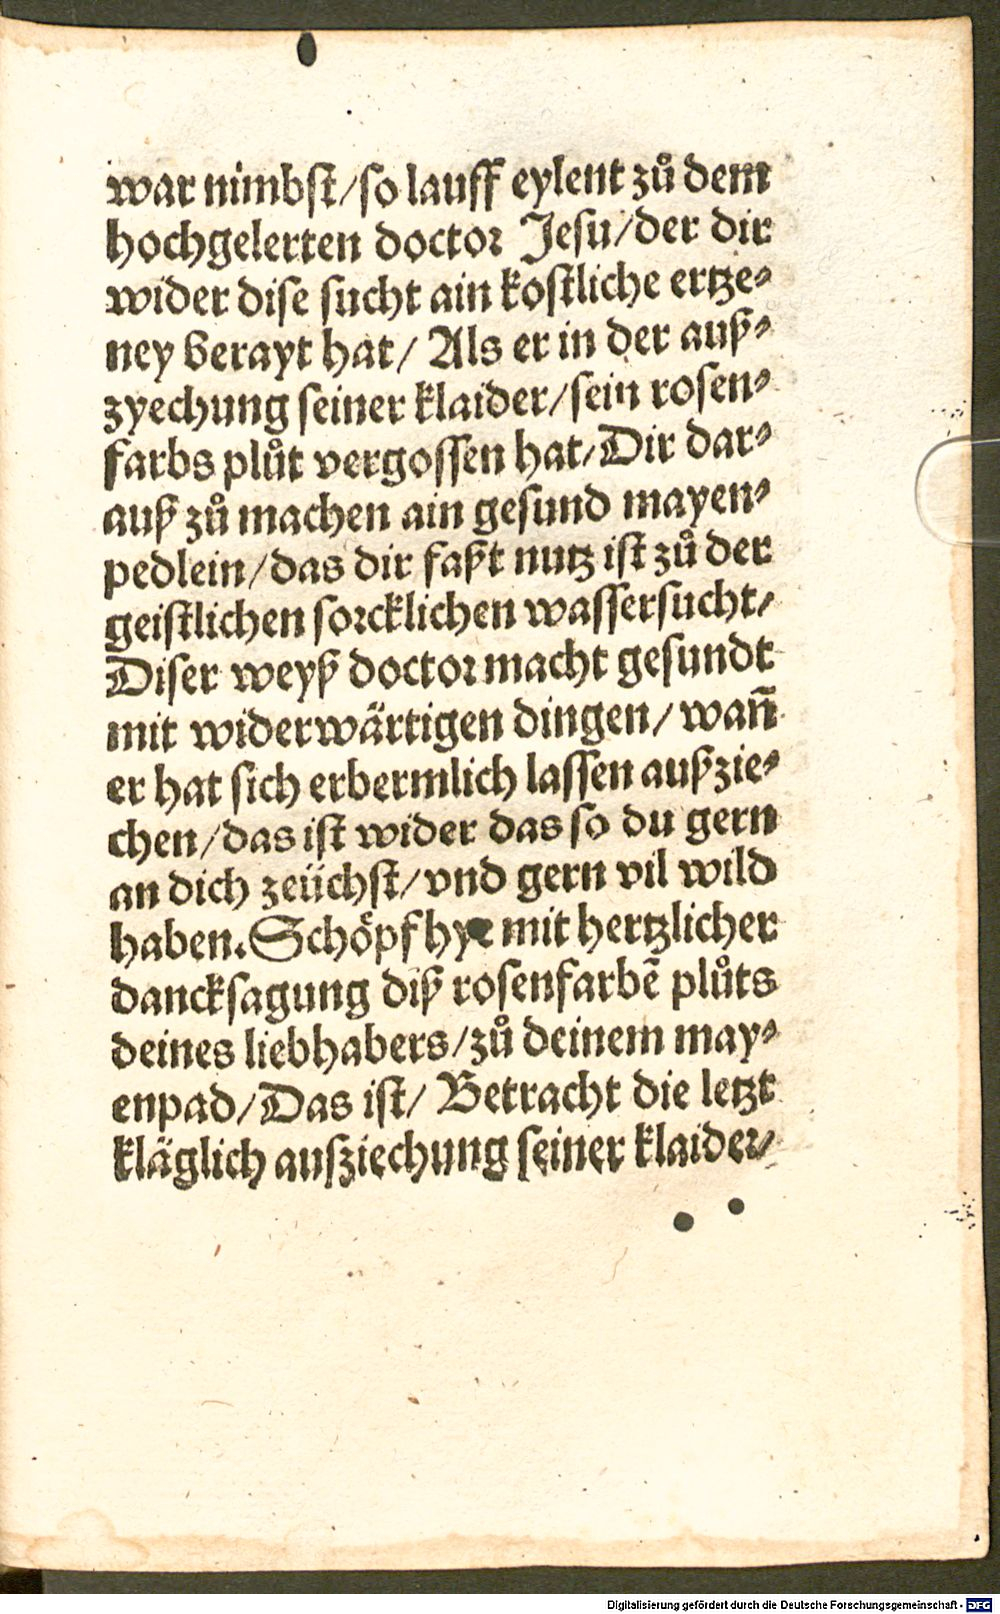 war nimbst/so lauff eylent zů dem
hochgelerten doctor Jesu/der dir
wider dise sucht ain kostliche ertze⸗
ney berayt hat/ Als er in der auß⸗
zyechung seiner klaider/sein rosen⸗
farbs plůt vergossen hat/Dir dar⸗
auß zů machen ain gesund mayen⸗
pedlein/das dir faßt nutz ist zů der
geistlichen sorcklichen wassersucht/
Diser weyß doctor macht gesundt
mit widerwärtigen dingen/ wañ
er hat sich erbermlich lassen außzie⸗
chen/das ist wider das so du gern
an dich zeüchst/vnd gern vil wild
haben. Schöpf hye mit hertzlicher
dancksagung diß rosenfarbẽ plůts
deines liebhabers/zů deinem may⸗
enpad/Das ist/ Betracht die letzt
kläglich ausziechung seiner klaider/
Digitalisierung gefördert durch die Deutsche Forschungsgemeinschaft - DFG